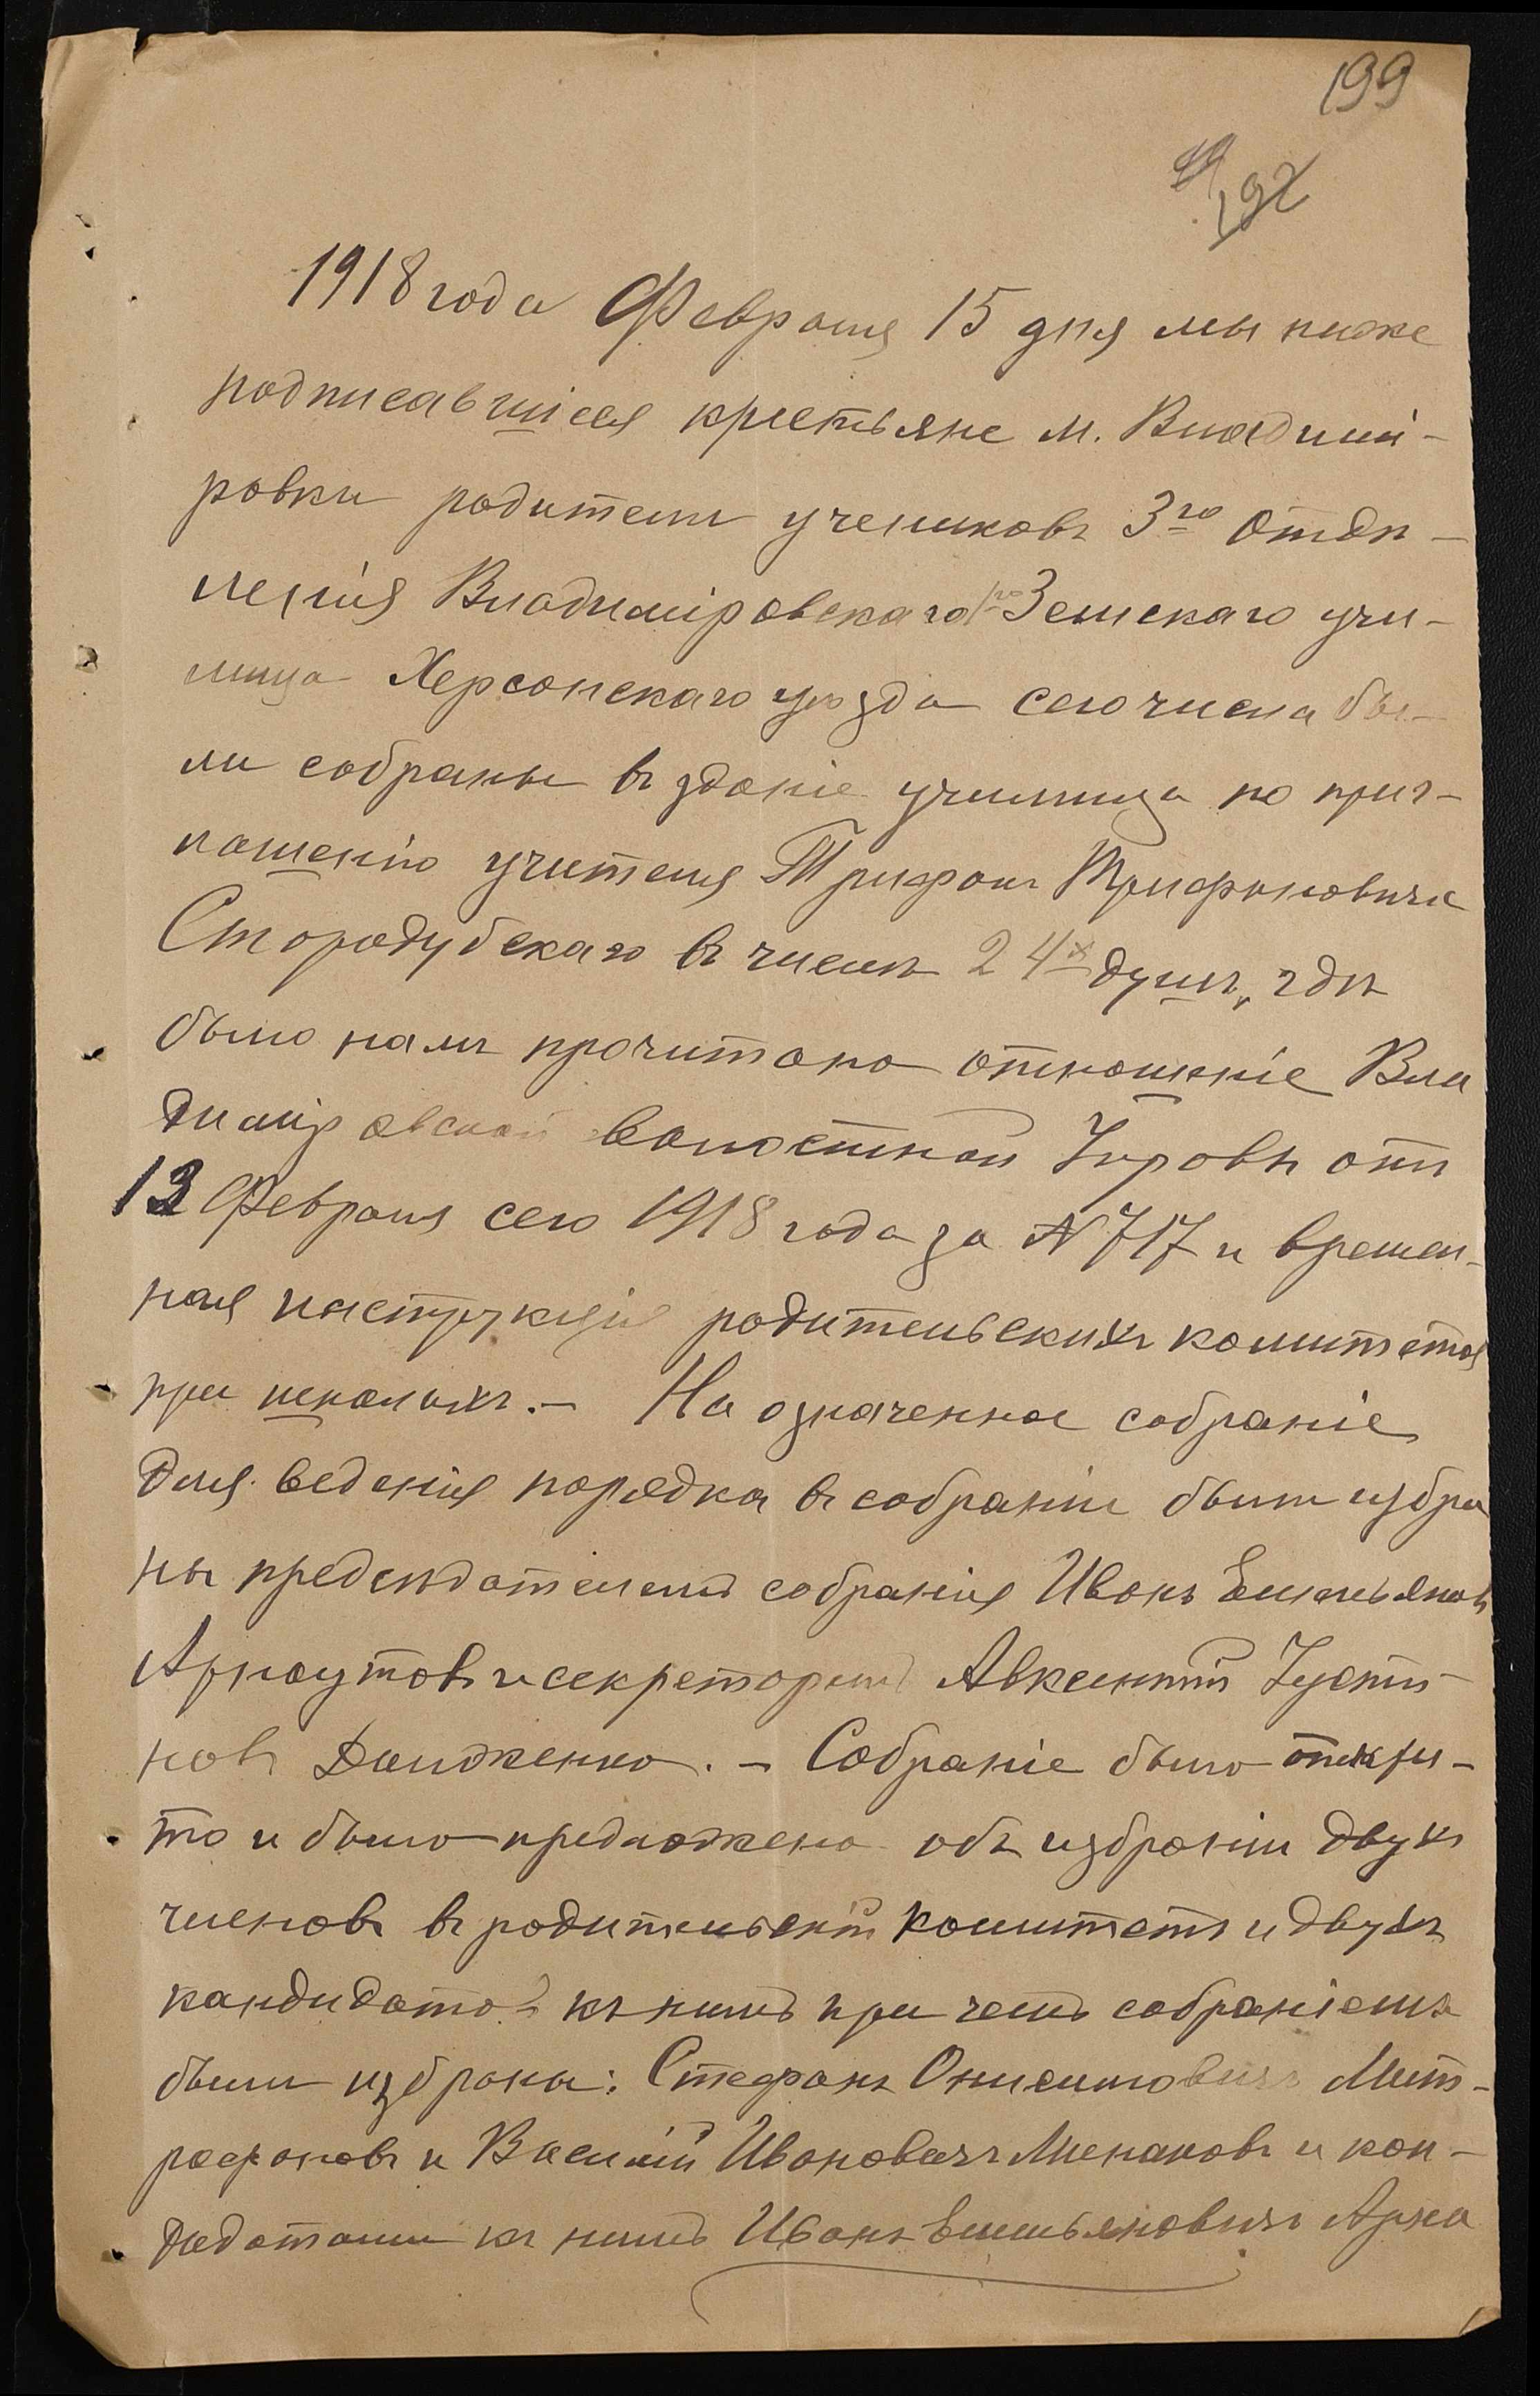 199
192
1918 года Февраля 15 дня мы ниже
подписавшіеся крестьяне м. Владимі-
ровки родители учениковъ 3го Отдѣ-
ленія Владиміровскаго 1го Земскаго учи-
лища Херсонскаго уѣзда сего числа бы-
ли собраны въ зданіе училища по приг-
лашенію учителя Трифона Трифоновича
Стародубскаго въ числѣ 24х душъ, гдѣ
было намъ прочитано отношеніе Вла
диміровской волостной Управы отъ
13 Февраля сего 1918 года за № 717 и времен-
ная инструкція родительскихъ комитетовъ
при школахъ.- На означенное собраніе
для веденія порядка въ собраніи были избра
ны предсѣдателемъ собранія Иванъ Емельяновъ
Арнаутовъ и секретаремъ Авксентій Іусти-
новъ Долженко. - Собраніе было откры-
то и было предложено объ избраніи двухъ
членовъ въ родительскій комитетъ и двухъ
кандидатовъ къ нимъ при чемъ собраніемъ
были избраны: Стефанъ Онисимовичъ Мит-
рофановъ и Василій Ивановичъ Минаковъ и кан-
дидатами къ нимъ Иванъ Емельяновичъ Арна